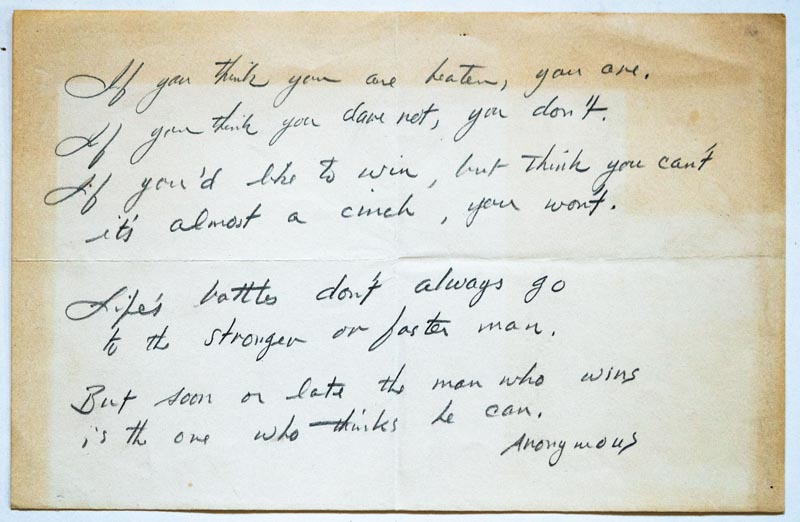 If you think you are beaten, you are.
If you think you dare not, you don't.
If you'd like to win, but think you can't
it's almost a cinch, you won't.
Life's battles don't always go
to the stronger or faster man.
But soon or late the man who wins
is the one who thinks he can.
Anonymous